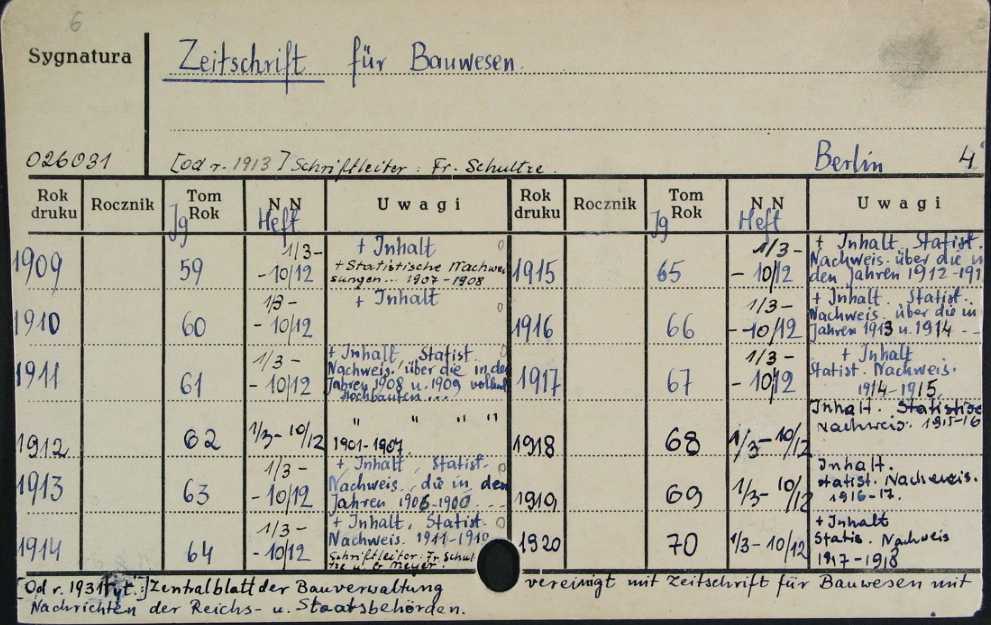 6
Sygnatura
Zeitschrift für Bauwesen.
026031
[od r. 1913] Schriftleiter: Fr. Schultze.
Berlin 4°
Rok druku Rocznik Tom Rok Jg N N Heft Uwagi Rok druku Rocznik Tom Rok Jg N N Heft Uwagi
1909 59 1/3 - - 10/12 + Inhalt
+ Statistische Nachwei
sungen... 1907-1908
1910 60 1/3 - - 10/12 + Inhalt
1911 61 1/3 - - 10/12 + Inhalt, Statist.
Nachweis. über die in den
Jahren 1908 u. 1909
Hochbauten...
1912 62 1/3 - 10/12 " " " "
1901-1907
1913 63 1/3 - - 10/12 + Inhalt, Statist.
Nachweis. die in den
Jahren
1914 64 1/3 - - 10/12 + Inhalt, Statist.
Nachweis. 1911-1910
Schriftleiter: Fr. Schul
tze u. G. Meyer.
1915 65 1/3 - - 10/12 + Inhalt Statist.
Nachweis. über die in
den Jahren 1912-191
1916 66 1/3 - - 10/12 + Inhalt. Statist.
Nachweis. über die in
Jahren 1913 u. 1914 - -
1917 67 1/3 - - 10/12 + Inhalt
Statist. Nachweis.
1914-1915
1918 68 1/3 - 10/12 Inhalt. Statistisc
Nachweis. 1915-16
1919 69 1/3 - 10/12 Inhalt.
statist. Nachweis.
1916-17.
1920 70 1/3 - 10/12 + Inhalt
Statis. Nachweis
1917-1918
[Od r. 1931 tyt.:] Zentralblatt der Bauverwaltung vereinigt mit Zeitschrift für Bauwesen mit
Nachrichten der Reichs- u. Staatsbehörden.